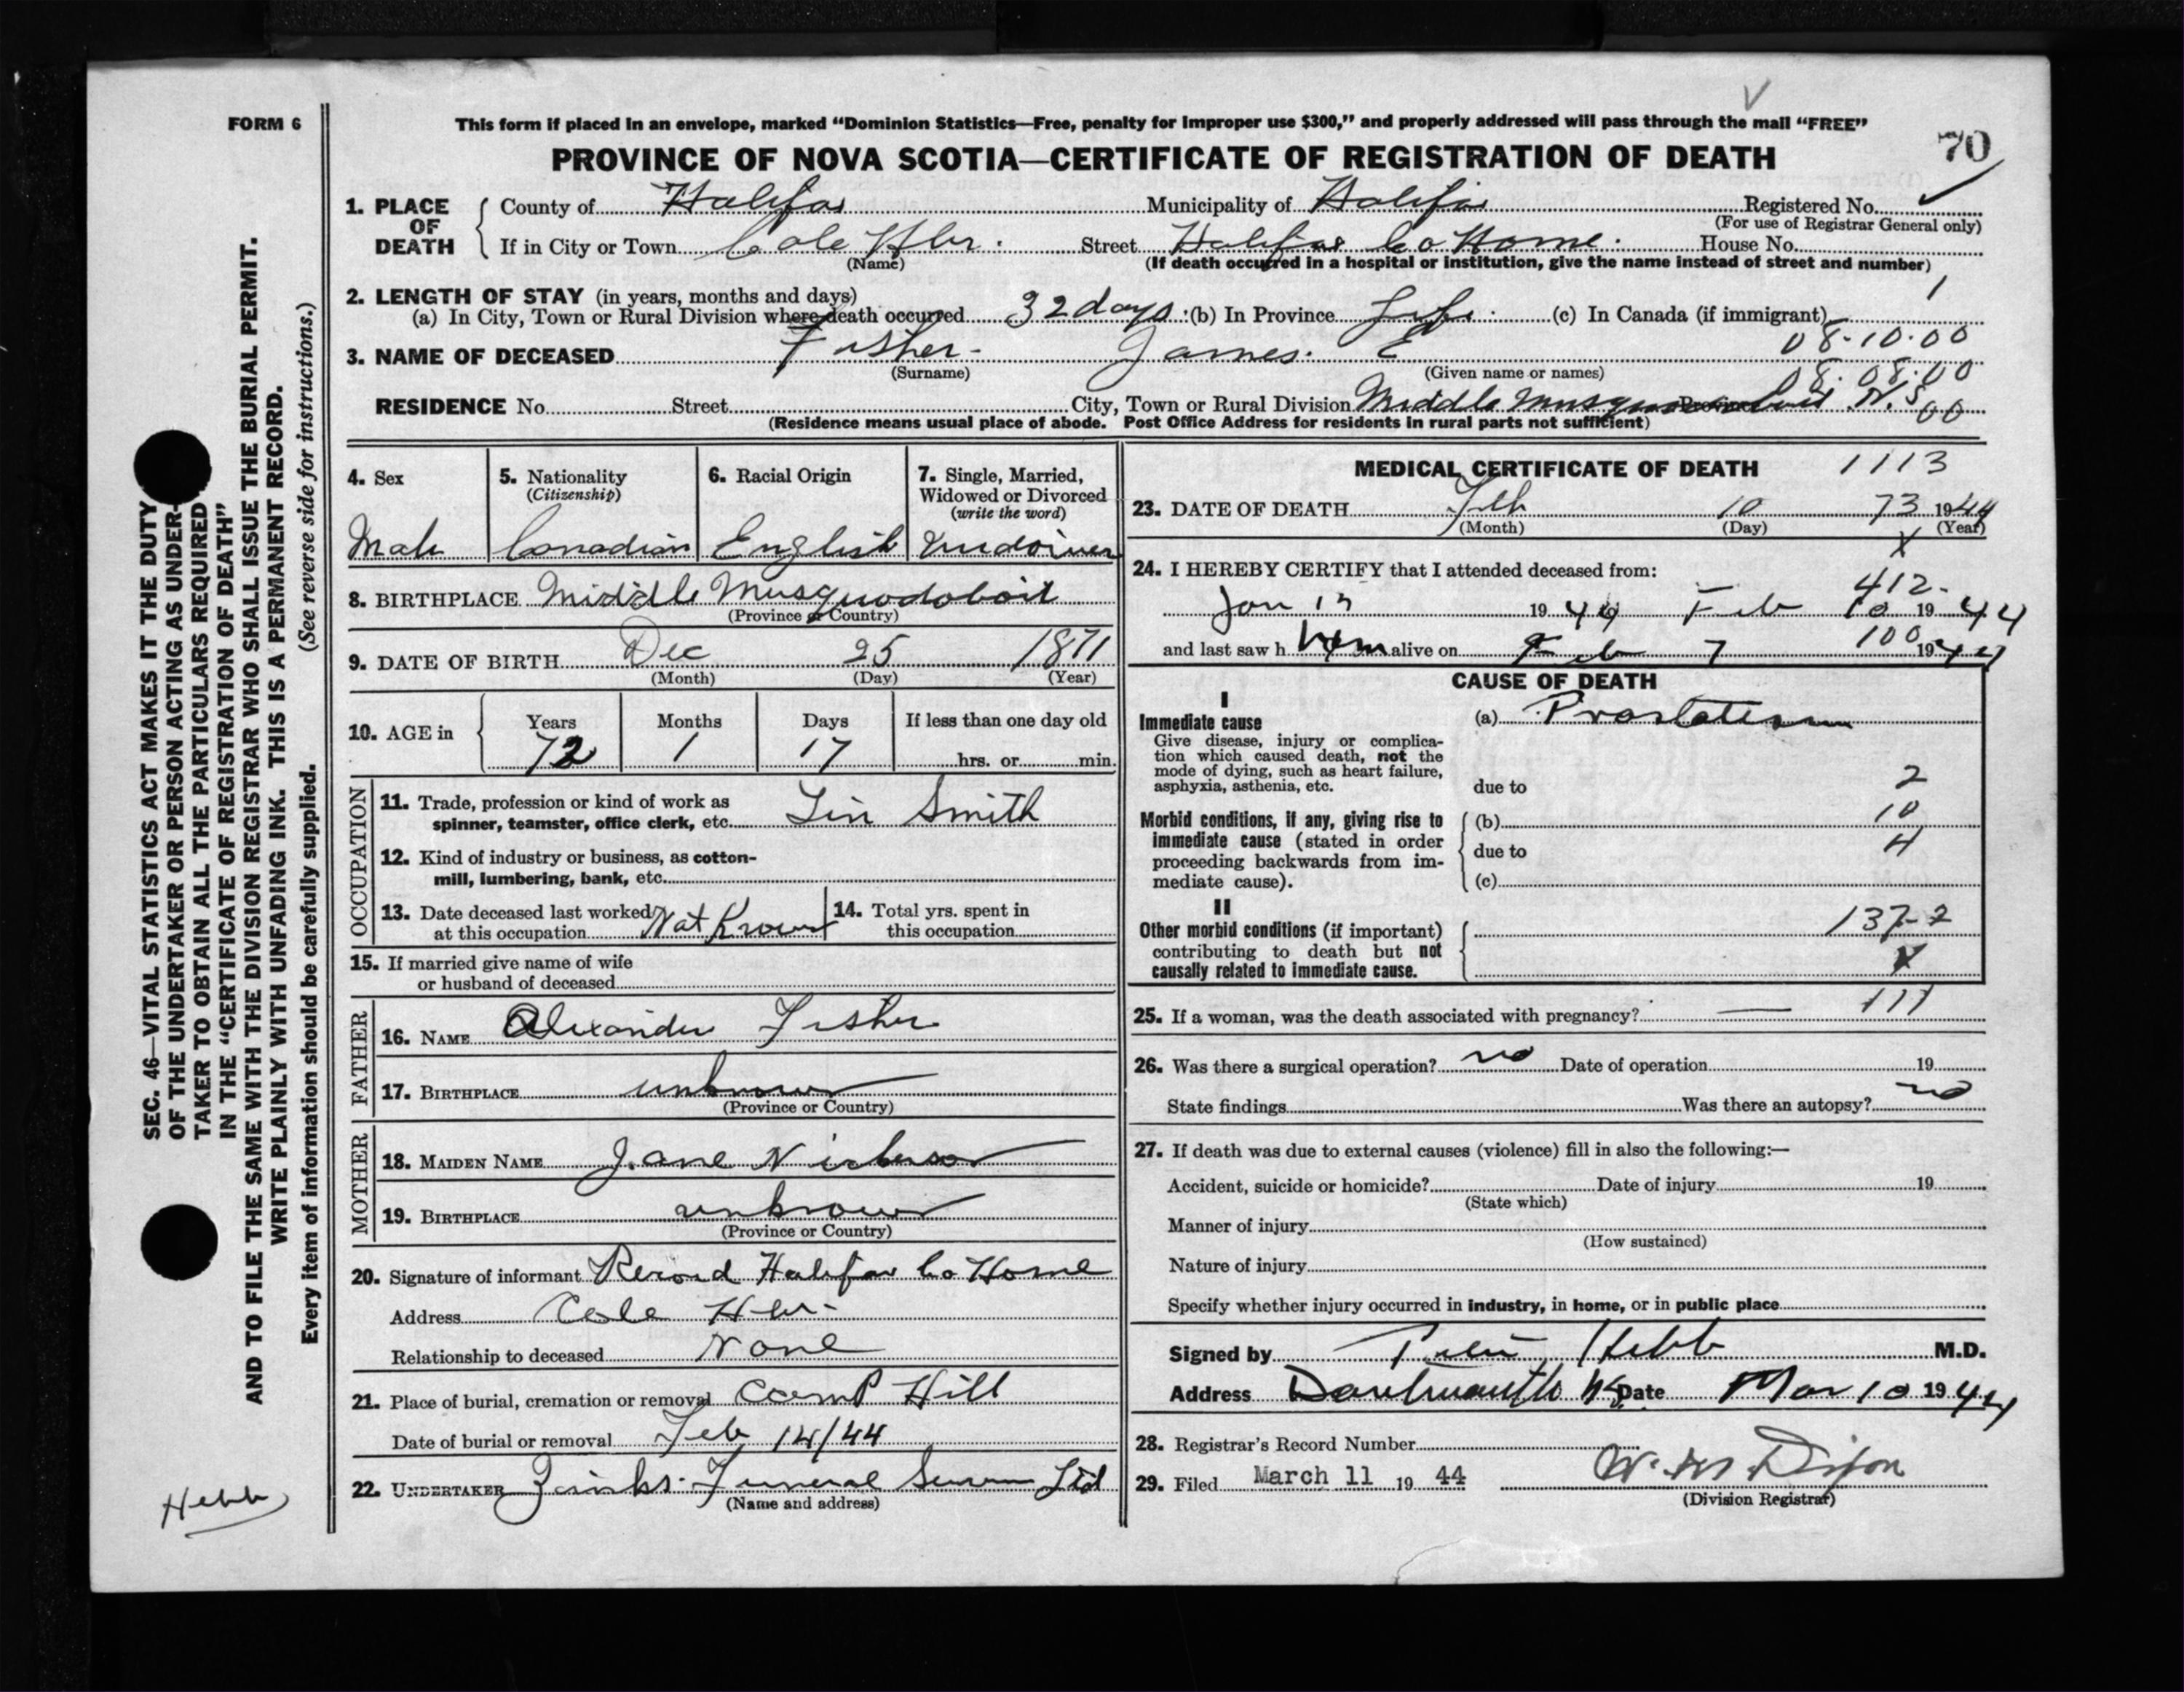 FORM 6
This form if placed in an envelope, marked "Dominion Statistics—Free, penalty for improper use $300," and properly addressed will pass through the mail "FREE"
PROVINCE OF NOVA SCOTIA—CERTIFICATE OF REGISTRATION OF DEATH
70
1. PLACE OF DEATH
County of Halifax Municipality of Halifax Registered No.
(For use of Registrar General only)
If in City or Town Cole Hbr. Street Halifax Co Home. House No.
(Name) (If death occurred in a hospital or institution, give the name instead of street and number)
2. LENGTH OF STAY (in years, months and days) 1
(a) In City, Town or Rural Division where death occurred 32 days. (b) In Province Life. (c) In Canada (if immigrant)
08-10-00
3. NAME OF DECEASED Fisher- James. E
(Surname) (Given name or names)
08-08-00
RESIDENCE No. Street City, Town or Rural Division Middle Musquodoboit Province N.S
00
(Residence means usual place of abode. Post Office Address for residents in rural parts not sufficient)
4. Sex
Male
5. Nationality
(Citizenship)
Canadian
6. Racial Origin
English
7. Single, Married,
Widowed or Divorced
(write the word)
8. BIRTHPLACE Middle Musquodoboit
(Province or Country)
9. DATE OF BIRTH Dec 25 1871
(Month) (Day) (Year)
10. AGE in
Years Months Days If less than one day old
72 1 17 hrs. or min.
OCCUPATION
11. Trade, profession or kind of work as
spinner, teamster, office clerk, etc. Tin Smith
12. Kind of industry or business, as cotton-
mill, lumbering, bank, etc.
13. Date deceased last worked
at this occupation Not Known
14. Total yrs. spent in
this occupation
15. If married give name of wife
or husband of deceased
FATHER
16. NAME Alexander Fisher
17. BIRTHPLACE unknown
(Province or Country)
MOTHER
18. MAIDEN NAME Jane Nickerson
19. BIRTHPLACE unknown
(Province or Country)
20. Signature of informant Record Halifax Co Home
Address Cole Hbr-
Relationship to deceased None
21. Place of burial, cremation or removal Camp Hill
Date of burial or removal Feb 14/44
22. UNDERTAKER Zinks Funeral Service Ltd
(Name and address)
MEDICAL CERTIFICATE OF DEATH 1113
23. DATE OF DEATH Feb 10 73 1944
(Month) (Day) (Year)
X
24. I HEREBY CERTIFY that I attended deceased from:
412-
Jan 1944 Feb 10 1944
and last saw him alive on Feb 7 100 1944
CAUSE OF DEATH
I
Immediate cause
Give disease, injury or complica-
tion which caused death, not the
mode of dying, such as heart failure,
asphyxia, asthenia, etc.
(a)
due to 2
Morbid conditions, if any, giving rise to
immediate cause (stated in order
proceeding backwards from im-
mediate cause).
(b) 10
due to 4
(c)
II
Other morbid conditions (if important)
contributing to death but not
causally related to immediate cause.
137-2
X
25. If a woman, was the death associated with pregnancy? — 111
26. Was there a surgical operation? no Date of operation 19
State findings Was there an autopsy? no
27. If death was due to external causes (violence) fill in also the following:—
Accident, suicide or homicide? Date of injury 19
(State which)
Manner of injury
(How sustained)
Nature of injury
Specify whether injury occurred in industry, in home, or in public place
Signed by Hebb M.D.
Address Dartmouth NS Date Mar 10 1944
28. Registrar's Record Number
29. Filed March 11 1944 W. M Dixon
(Division Registrar)
SEC. 46—VITAL STATISTICS ACT MAKES IT THE DUTY
OF THE UNDERTAKER OR PERSON ACTING AS UNDER-
TAKER TO OBTAIN ALL THE PARTICULARS REQUIRED
IN THE "CERTIFICATE OF REGISTRATION OF DEATH"
AND TO FILE THE SAME WITH THE DIVISION REGISTRAR WHO SHALL ISSUE THE BURIAL PERMIT.
WRITE PLAINLY WITH UNFADING INK. THIS IS A PERMANENT RECORD.
Every item of information should be carefully supplied. (See reverse side for instructions.)
Hebb